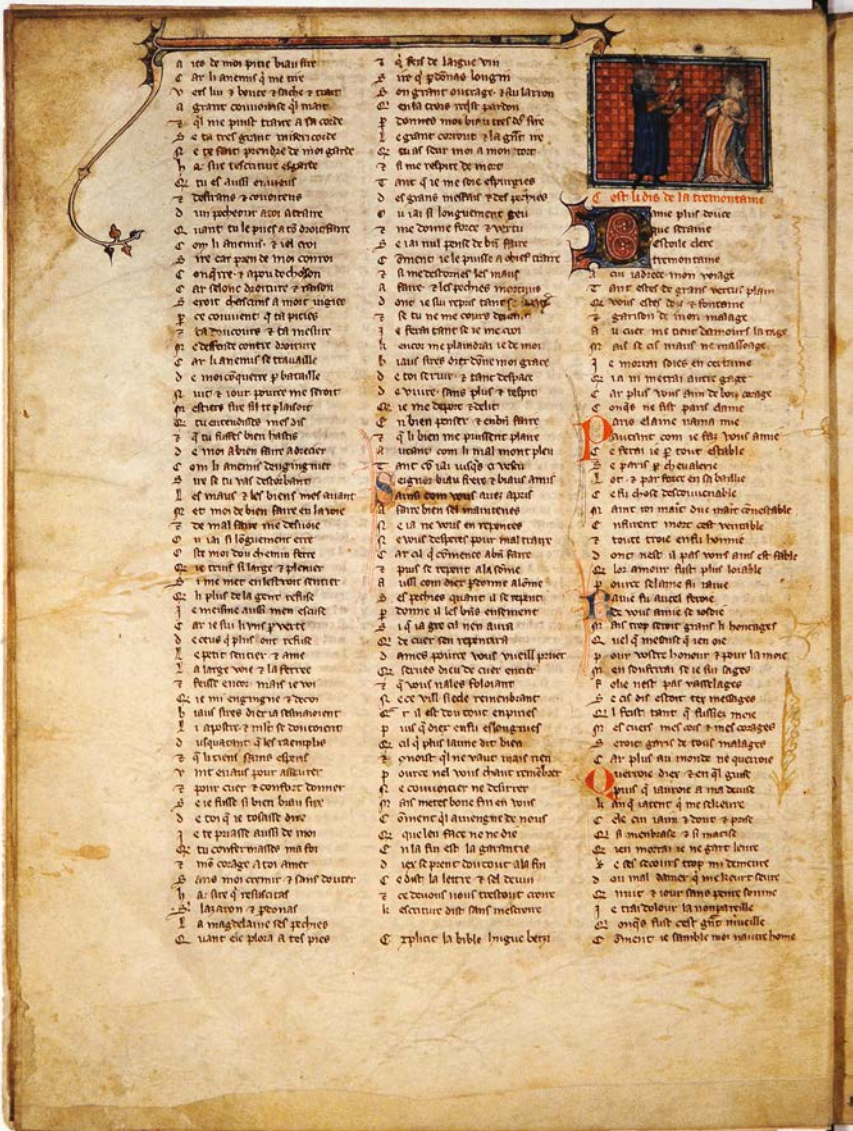 A ies de moi pitie biau sire
C ar li anemis q̃ me tire
V ers lui & boute & sache & trait
A grant couuoitise q̃l mait
& q̃l me puist traire a sa corde
S e ta tres grant misericorde
N e te fait prendre de moi garde
h a sire tescriture esgarde
Q tu es aussi enuieus
& desirans & couoiteus
D un pecheour a toi atraire
Q uant tu le pues a tõ droit faire
C om li anemis & iel croi
S ire car pren de moi conroi
C onq̃re & a pou dochoison
C ar selonc droiture & raison
S eroit chascuns a mort iugies
P ce couuient q̃ ta pities
& ta doucours & ta mesure
M e deffende contre droiture
C ar li anemis se trauaille
D e moi cõquerre p bataille
N uit & iour pource me seroit
M estiers sire sil te plaisoit
Q tu entendisses mes dis
& q̃ tu fusses bien hastis
D e moi a bien faire adrecier
C om li anemis dengingnier
S ire se tu vas destorbant
L es maus & les biens mes auant
M et moi de bien faire en la voie
& de mal faire me desuoie
O u iai si lõguement erre
O ste moi dou chemin ferre
Q ie truis si large & plenier
S i me met en lestroit sentier
Q li plus de la gent refuse
J e meisme aussi men escuse
C ar ie sui li vns puerte
D e ceus q̃ plus ont refuse
L e petit sentier & ame
L a large voie & la ferree
& feisse encor mais ie voi
Q ie mi engingne & decoi
B iaus sires diex ia senauoient
L i apostre & mlt se doutoient
D usquatant q̃ les raemplis
& q̃ li tiens sains espris
V int en aus pour asseurer
& pour cuer & confort donner
S e ie fusse si bien biau sire
D e toi q̃ ie tosasse dire
J e te priasse aussi de moi
Q tu confermasses ma foi
& mõ corage a toi amer
S ans moi cremir & sans douter
h a sire q̃ resuscitas
S lazaron & pdonas
L a magdelaine ses pechies
Q uant ele plora a tes pies
& q̃ feis de laigue vin
S ire q̃ pdonas longin
S on grant outrage & au larron
Q en la crois reqist pardon
P donnes moi biau tres dõ sire
L e grant corrout & la grãt ire
Q tu as seur moi a mon tort
& si me respite de mort
T ant q̃ ie me soie espurgies
D es grans mesfais & des pechies
O u iai si longuement geu
& me donne force & vertu
S e iai nul pense de bñ faire
C õment ie le puisse a chief traire
& si me destornes les maus
A faire & les pechies morteus
D ont ie sui repris tant
& se tu ne me cours
J e ferai tant se ie me croi
K encor me plaindrai ie de moi
B iaus sires diex dõne moi grace
D e toi seruir & tant despace
D e viure sans plus & respit
Q ie me deporte & delit
E n bien penser & en bñ faire
& q̃ li bien me puissent plaire
A utant com li mal mont pleu
T ant cõ iai iusqs ci vescu
Seignor biau frere & biaus amis
Ainsi com vous aues apris
A faire bien sel maintenes
N e ia ne vous en repentes
N e vous desperes pour mal traire
C ar cil q̃ cõmence a bñ faire
& puis se repent a la sõme
A ussi com diex pdonne a lõme
S es pechies quant il se repent
P donne il les bñs ensement
S i q̃ ia gre cil nen aura
Q de cuer sen repentira
D ames pource vous vueill prier
Q serues dieu de cuer entier
& q̃ vous nales foloiant
N e ce vill siecle remenbrant
Q r il est dou tout enpiries
P uis q̃ diex en fu eslongnies
Q cil q̃ plus laime dit bien
& gnoist q̃l ne vaut mais rien
P ource nel vous chaut remẽbrer
N e couuoitier ne desirrer
M ais metes bone fin en vous
C õment q̃l auiengne de nous
Q que leu face ne ne die
E n la fin est la garantie
D iex se prent dou tout a la fin
C e dist la lettre & sel deuin
& ce deuons nous trestout croire
K escriture dist sans mescroire
E xplicit la bible hugue berzi
C est li dis de la tremontaine
Dame plus douce
que seraine
estoile clere
tremontaine
A cui iadrece mon voiage
T ant estes de grans vertus plain
Q vous estes dois & fontaine
& garison de mon malage
A u cuer me tient damours la rage
M ais se cis maus ne massoage
J e morrai soies en certaine
Q ia ni metrai autre gage
C ar plus vous aim de bon corage
C onqs ne fist paris elaine
Paris elaine nama mie
Autant com ie faz vous amie
C e ferai ie p tout estable
S e paris p cheualerie
L ot & par force en sa baillie
C e fu chose descouuenable
M aint roi maint duc maint cõnestable
E n furent mort cest veritable
& toute troie en fu honnie
D ont nest il pas vous ains est fable
Q lor amour fust plus loiable
P ource sel ame fu rauie
Rauie fu aucel feroie
De vous amie se iosoie
M ais trop seroit grans li hontages
Q uel q̃ mesaise q̃ ien oie
P our vostre honeur & pour la moie
M en souferrai se ie sui sages
F olie nest pas vasselages
S e cis dis estoit tex messages
Q l feist tant q̃ fussies moie
M es cuers mes cors & mes corages
S eroit garis de tous malages
C ar plus au monde ne querroie
Querroie diex & en q̃l guise
Puis q̃ iauroie a ma deuise
K an q̃ iatent q̃ me sekeure
C ele cui iaim & dout & prise
Q si menbrase & si matise
Q ien morrai ie ne gart leure
S e ses secours trop mi demeure
D ou mal damer q̃ me keurt seure
Q nuit & iour sans pente
J e trai dolour la nonpareille
Q onqs fust cest grãt mueille
C õment ie samble miex nautre home